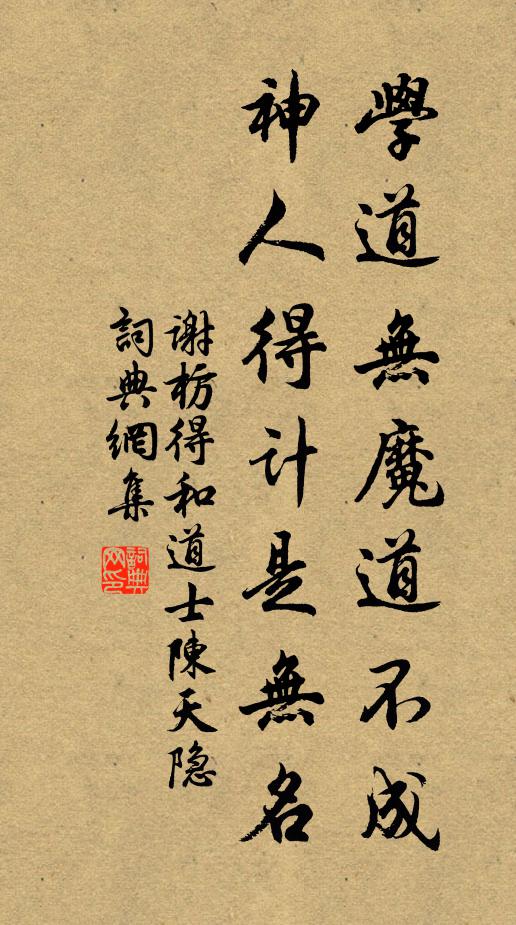 學道無魔道不成
神人得計是無名
谢枋得和道士陳天隐
詞典網集
詞典网印